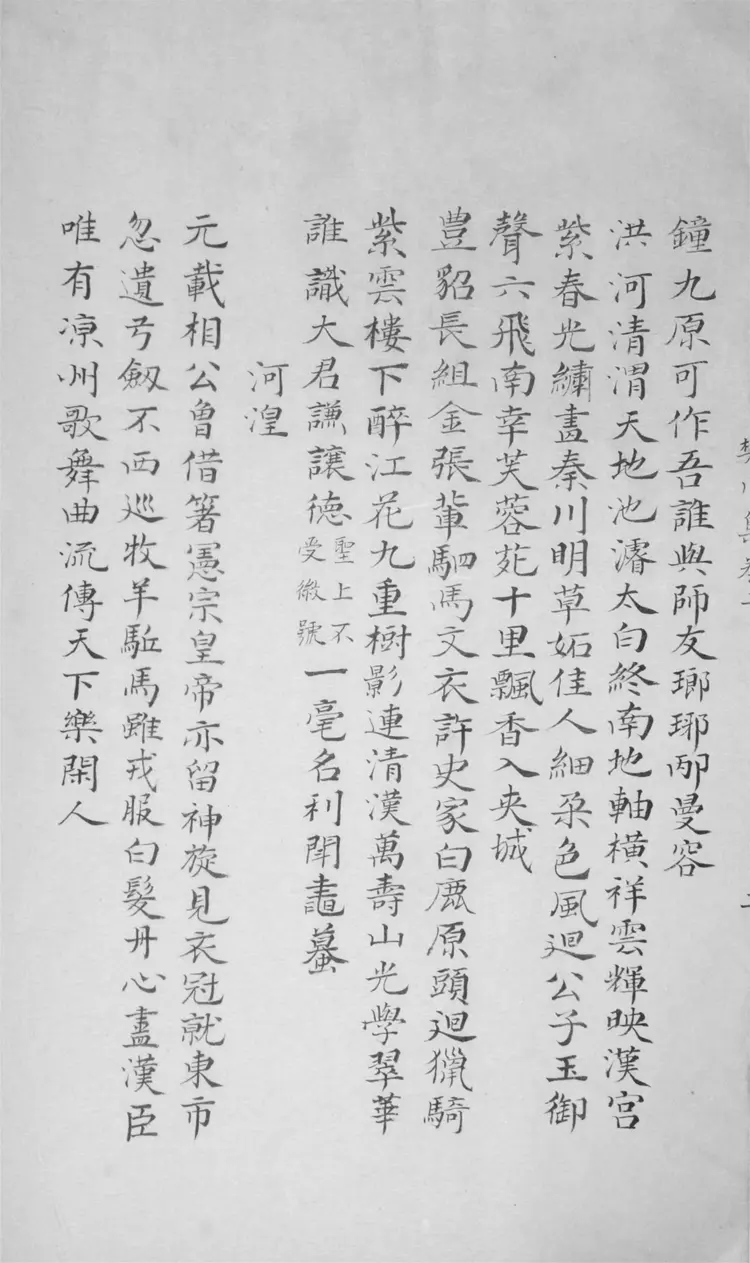 鐘九原可作吾誰與師友瑯琊邴曼容
洪河清渭天地池濬太白終南地軸橫祥雲輝映漢宮
紫春光繡畫秦川明草妬佳人細朶色風迴公子玉御
聲六飛南幸芙蓉苑十里飄香入夾城
豊貂長組金張輩駟馬文衣許史家白鹿原頭迴獵騎
紫雲樓下醉江花九重樹影連清漢萬壽山光學翠華
誰識大君謙讓德聖上不受徽號一毫名利鬥鼃蟇
河湟
元載相公曾借箸憲宗皇帝亦留神旋見衣冠就東市
忽遺弓劔不西巡牧羊駈馬雖戎服白髮丹心盡漢臣
唯有凉州歌舞曲流傳天下樂閑人